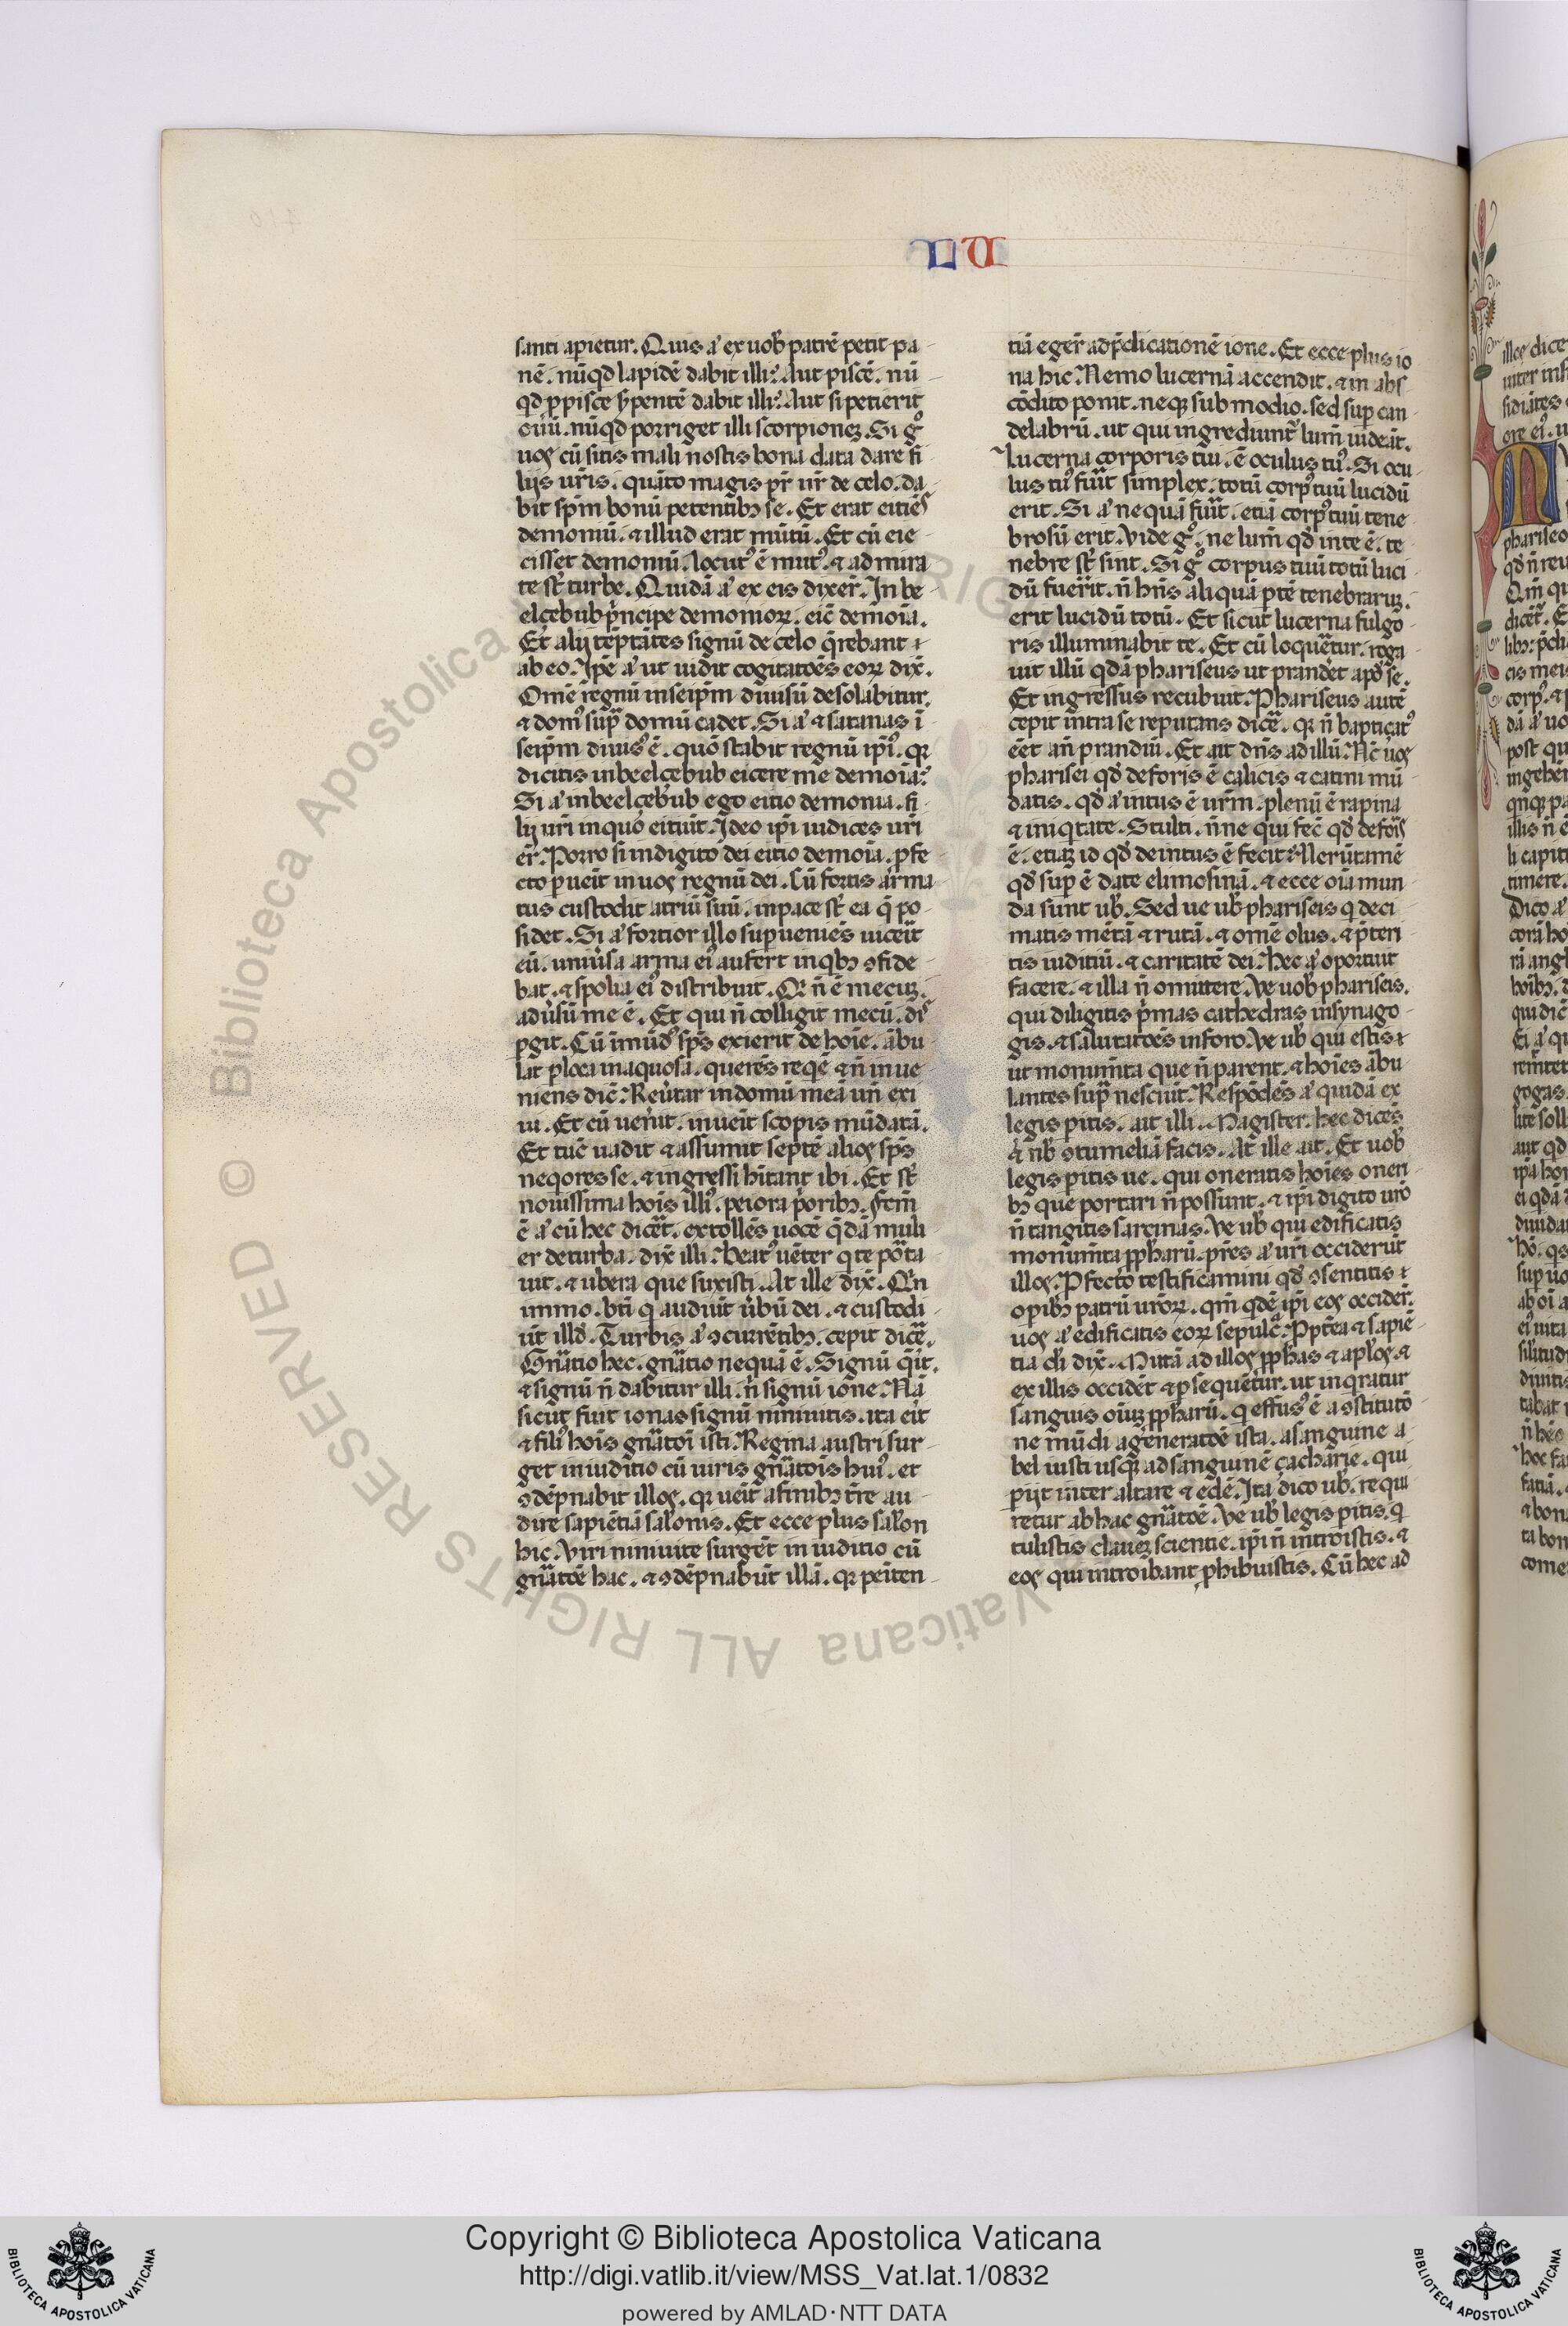 LU
santi apietur. Quis a' ex uob̄ patrē petit pa-
nē. nūqd lapidē dabit illi? Aut piscē. nū-
qd ꝓ pisce sꝑentē dabit illi? Aut si petierit
ouū. nūqd porriget illi scorpionez. Si gͦ
uos cū sitis mali nostis bona data dare fi-
lijs ur̄is. quāto magis pr̄ ur̄ de celo. da-
bit sp̄m bonū petentibꝫ se. Et erat eitiēs
demoniū. ⁊ illud erat mūtū. Et cū eie-
cisset demoniū. locutꝰ ē mutꝰ. ⁊ admira-
te st̄ turbe. Quidā a' ex eis dixer̄. In be-
elçebub p̄ncipe demonioꝝ. eic̄ demoīa.
Et alij tēptātes signū de celo q̄rebant
ab eo. Ip̄e a' ut uidit cogitatoēs eoꝝ dix̄.
Om̄e regnū in seip̄m diuisū desolabitur.
⁊ domꝰ sup̄ domū cadet. Si a' ⁊ satanas ī
seip̄m diuisꝰ ē. quō stabit regnū ip̄iꝰ. qꝛ
dicitis in beelçebub eicere me demoīa?
Si a' in beelçebub ego eitio demonia. fi-
lij ur̄i in quo eitiūt. Ideo ip̄i iudices ur̄i
er̄t. Porro si in digito dei eitio demoīa. ꝓfe-
cto ꝑueīt in uos regnū dei. Cū fortis arma-
tus custodit atriū suū. in pace st̄ ea q̄ po-
sidet. Si a' fortior illo suꝑueniēs uiceīt
eū. uniu'sa arma eiꝰ aufert in qbꝫ ꝯfide-
bat. ⁊ spolia eiꝰ distribuit. Q n̄ ē mecuz.
adu'sū me ē. Et qui n̄ colligit mecū. dis-
ꝑgit. Cū īmūdꝰ sp̄s exierit de hoīe. ābu-
lat ꝑ loca inaquosa. querēs reqē ⁊ n̄ inue-
niens dic̄. Reu'tar in domū meā un̄ exi-
ui. Et cū uen'it. inueīt scopis mūdatā.
Et tūc uadit ⁊ assumit septē alios sp̄s
neqores se. ⁊ ingressi hītant ibi. Et st̄
nouissima hoīs illiꝰ. peiora p̄oribꝫ. Fcm̄
ē a' cū hec dicēt. extollēs uocē q̄dā muli-
er de turba. dix̄ illi. Beatꝰ uēter q te pōta-
uit. ⁊ ubera que suxisti. At ille dix̄. Qīn
immo. bt̄i q audiūt u'bū dei. ⁊ custodi-
ūt illd̄. Turbis a' ꝯcurrētibꝫ. cepit dic̄e.
Gnātio hec. gnātio nequā ē. Signū q̄it.
⁊ signū n̄ dabitur illi. n̄ signū ione. Nā
sicut fuit ionas signū niniuitis. ita eīt
⁊ filiꝰ hoīs gnātoi isti. Regina austri sur-
get in iuditio cū uiris gnātoīs huiꝰ. et
ꝯdēpnabit illos. qꝛ ueīt a finibꝫ tr̄e au-
dire sapiētiā salōonis. Et ecce plus salōon
hic. Viri niniuite surgēt in iuditio cū
gnātoē hac. ⁊ ꝯdēpnabūt illā. qꝛ peiten-
tiā eger̄ ad p̄dicationē ione. Et ecce plus io-
na hic. Nemo lucernā accendit. ⁊ in abs-
cōdito ponit. neqꝫ sub modio. sed sup can-
delabrū. ut qui ingrediunt̄ lum̄ uideāt.
Lucerna corporis tui. ē oculus tuꝰ. Si ocu-
lus tuꝰ fuīt simplex. totū corpꝰ tuū lucidū
erit. Si a' nequā fuīt. etiā corpꝰ tuū tene-
brosū erit. Vide gͦ. ne lum̄ qd̄ in te ē. te-
nebre st̄ sint. Si gͦ corpus tuū totū luci-
dū fuerīt. n̄ hn̄s aliquā ꝑtē tenebraruz.
erit lucidū totū. Et sicut lucerna fulgo-
ris illuminabit te. Et cū loquētur. roga-
uit illū qdā phariseus ut pranderet apd̄ se.
Et ingressus recubuit. Phariseus autē
cepit intra se reputans dic̄e. qꝛ n̄ baptiçatꝰ
eēt an̄ prandiū. Et ait dn̄s ad illū. Nc̄ uos
pharisei qd̄ deforis ē calicis ⁊ catini mū-
datis. qd̄ a' intus ē ur̄m. plenū ē rapina
⁊ iniqtate. Stulti. n̄ne qui fec̄ qd̄ deforīs
ē. etiaz id qd̄ deintus ē fecit? Uerūtamē
qd̄ suꝑ ē date elimosinā. ⁊ ecce oīa mun-
da sunt ub̄. Sed ue ub̄ phariseis q deci-
matis mētā ⁊ rutā. ⁊ om̄e olus. ⁊ p̄teri-
tis iuditiū. ⁊ caritatē dei. hec a' oportuit
facere. ⁊ illa n̄ omittere. Ve uob̄ phariseis.
qui diligitis p̄mas cathedras in synago-
gis. ⁊ salutatoēs in foro. Ve ub̄ qui estis
ut monum̄ta que n̄ parent. ⁊ hoīes ābu-
lantes sup̄ nesciūt. Respōdēs a' quidā ex
legis ꝑitis. ait illi. Magister. hec dicēs
⁊ nb̄ ꝯtumeliā facis. At ille ait. Et uob̄
legis ꝑitis ue. qui oneratis hoīes oneri-
bꝫ que portari n̄ possunt. ⁊ ip̄i digito ur̄o
n̄ tangitis sarcinas. Ve ub̄ qui edificatis
monum̄ta ꝓph̄arū. pr̄es a' ur̄i occiderūt
illos. Profecto testificamini qd̄ ꝯsentitis
opibꝫ patrū ur̄oꝝ. qm̄ qdē ip̄i eos occider̄.
uos a' edificatis eoꝝ sepulc̄a. Ppt̄ea ⁊ sapiē-
tia d̄i dix̄. Mitā ad illos ꝓph̄as ⁊ apl̄os. ⁊
ex illis occidēt ⁊ ꝑsequētur. ut inqratur
sanguis oīuz ꝓph̄arū. q effusꝰ ē a ꝯstitutō-
ne mūdi a generatoē ista. a sanguine a-
bel iusti usqꝫ ad sanguinē çacharie. qui
ꝑijt inter altare ⁊ edē. Ita dico ub̄. requi-
retur ab hac gnātoē. Ve ub̄ legis ꝑitis. q
tulistis clauez scientie. ip̄i n̄ introistis. ⁊
eos qui introibant ꝓhibuistis. Cū hec ad
© Biblioteca Apostolica Vaticana ALL RIGHTS RESERVED
Copyright © Biblioteca Apostolica Vaticana
http://digi.vatlib.it/view/MSS_Vat.lat.1/0832
powered by AMLAD·NTT DATA
BIBLIOTECA APOSTOLICA VATICANA
BIBLIOTECA APOSTOLICA VATICANA